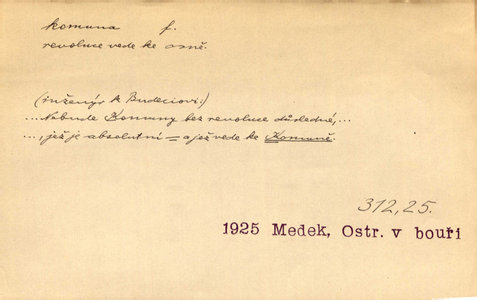 komuna f.
revoluce vede ke osně.
(inženýr k Budeciovi:)
...Nebude Komuny bez revoluce důsledné,...
..., jež je absolutní = a jež vede ke Komuně.
312,25.
1925 Medek, Ostr. v bouři